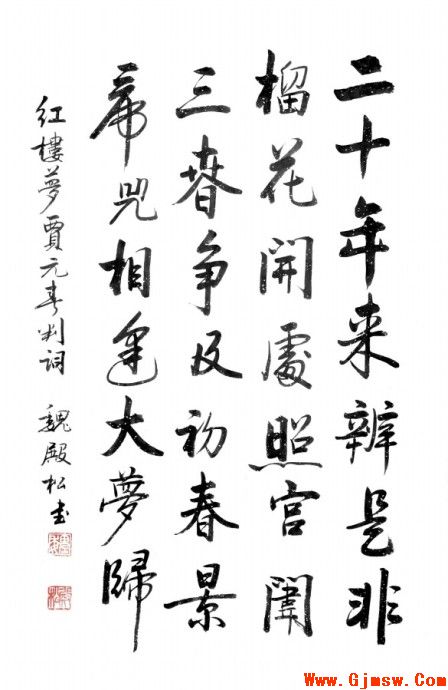 二十年来辨是非
榴花開處照宫闈
三春争及初春景
虎兕相逢大夢歸
红樓夢賈元春判词 魏殿松书
Www.Gjmsw.Com